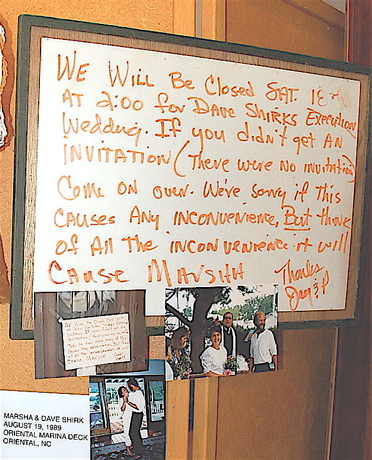 WE WILL BE CLOSED SAT. 18
AT 2:00 for DAVE SHIRKS EXECUTION
Wedding. If you didn't get AN
INVITATION (There were no invitations)
COME ON over. We're sorry if This
CAUSES ANY INCONVENIENCE, But think
of All THE INCONVENIENCE it will
CAUSE MARSHA
Thanks
MARSHA & DAVE SHIRK
AUGUST 19, 1989
ORIENTAL MARINA DECK
ORIENTAL, NC